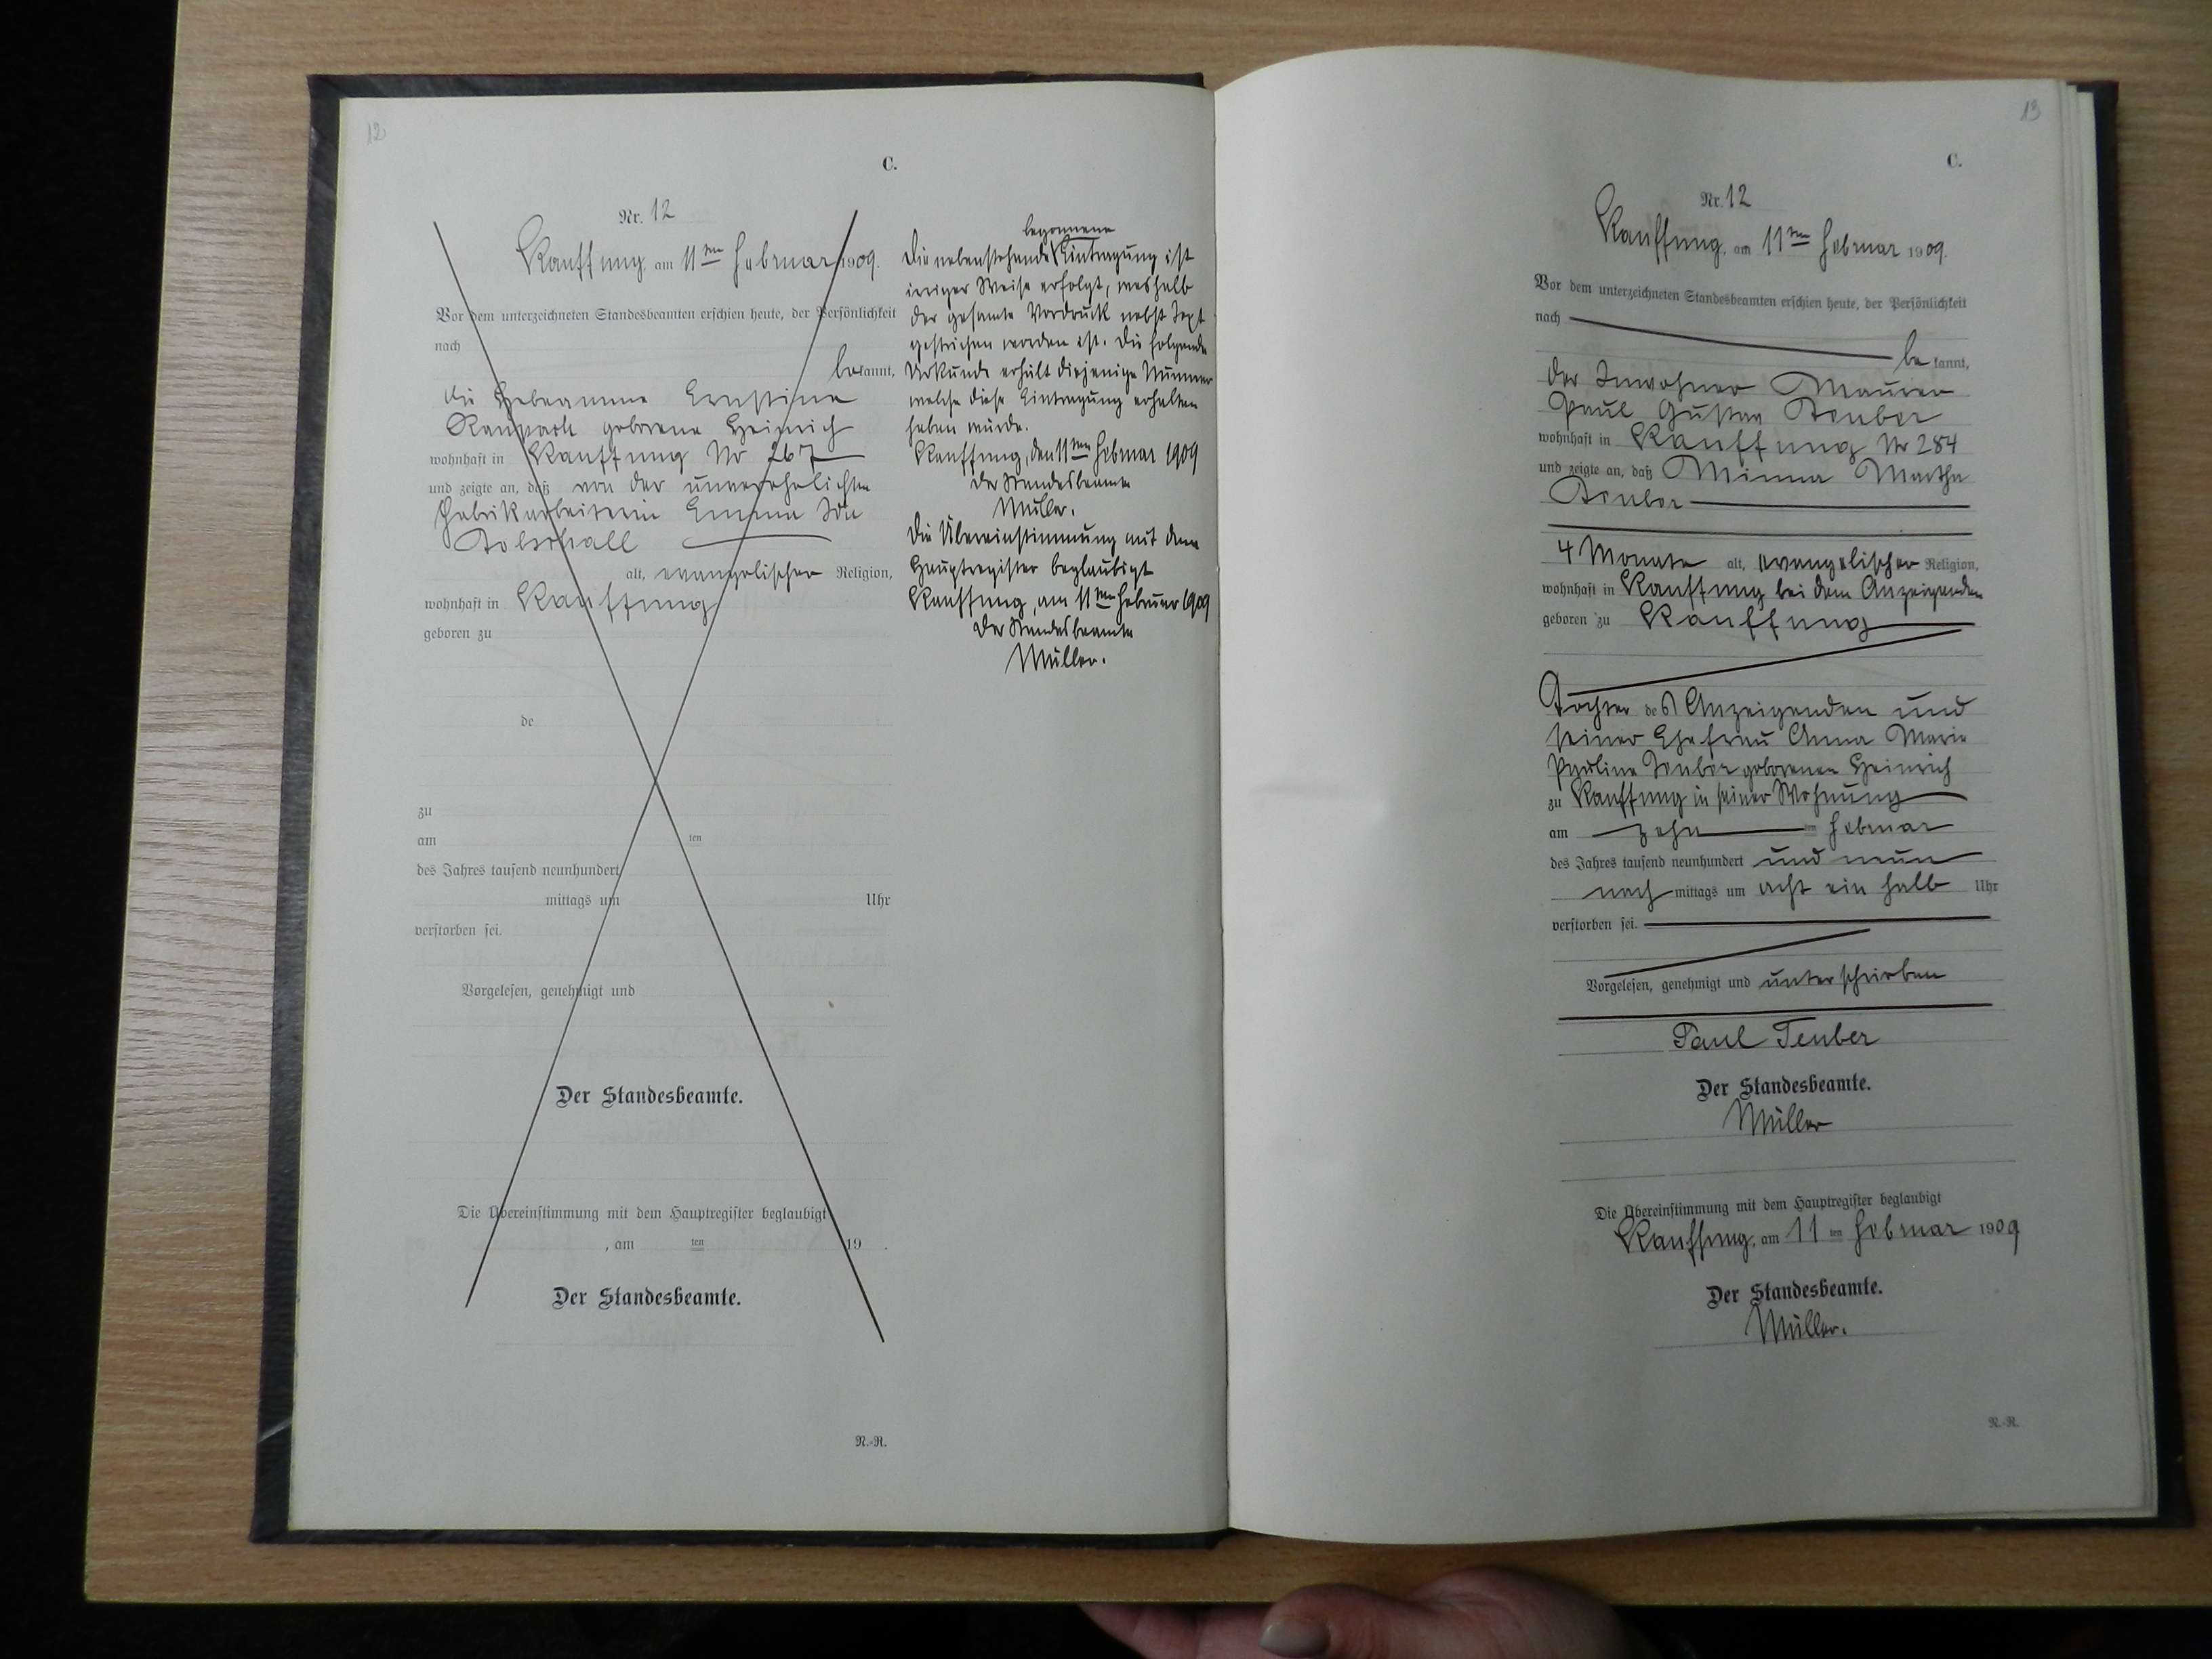 12
C.
Nr. 12
Kauffung, am 11ten Februar 1909.
Vor dem unterzeichneten Standesbeamten erschien heute, der Persönlichkeit
nach
bekannt,
die Hebeamme Ernstine
geborene Heinrich
wohnhaft in Kauffung Nr 267
und zeigte an, daß von der unverehelichten
Fabrikarbeiterin Emma Ida
alt, evangelischer Religion,
wohnhaft in Kauffung
geboren zu
de
zu
am ten
des Jahres tausend neunhundert
mittags um Uhr
verstorben sei.
Vorgelesen, genehmigt und
Der Standesbeamte.
Die Übereinstimmung mit dem Hauptregister beglaubigt
, am ten 19 .
Der Standesbeamte.
N.-R.
begonnene
Die nebenstehende Eintragung ist
irriger Weise erfolgt, weshalb
der gesamte Vordruck nebst Text
gestrichen worden ist. Die folgende
Urkunde erhält diejenige Nummer
welche diese Eintragung erhalten
haben würde.
Kauffung, den 11ten Februar 1909
Der Standesbeamte
Müller.
Die Übereinstimmung mit dem
Hauptregister beglaubigt
Kauffung, am 11ten Februar 1909
Der Standesbeamte
Müller.
13
C.
Nr. 12
Kauffung, am 11ten Februar 1909.
Vor dem unterzeichneten Standesbeamten erschien heute, der Persönlichkeit
nach
bekannt,
der Inwohner Maurer
Paul Gustav Teuber
wohnhaft in Kauffung Nr 284
und zeigte an, daß Minna Martha
Teuber
4 Monate alt, evangelischer Religion,
wohnhaft in Kauffung bei dem Anzeigenden
geboren zu Kauffung
Tochter des Anzeigenden und
seiner Ehefrau Anna Marie
Pauline Teuber geborenen Heinrich
zu Kauffung in seiner Wohnung
am zehn ten Februar
des Jahres tausend neunhundert und neun
nachmittags um acht ein halb Uhr
verstorben sei.
Vorgelesen, genehmigt und unterschrieben
Paul Teuber
Der Standesbeamte.
Müller
Die Übereinstimmung mit dem Hauptregister beglaubigt
Kauffung, am 11 ten Februar 1909
Der Standesbeamte.
Müller.
N.-R.